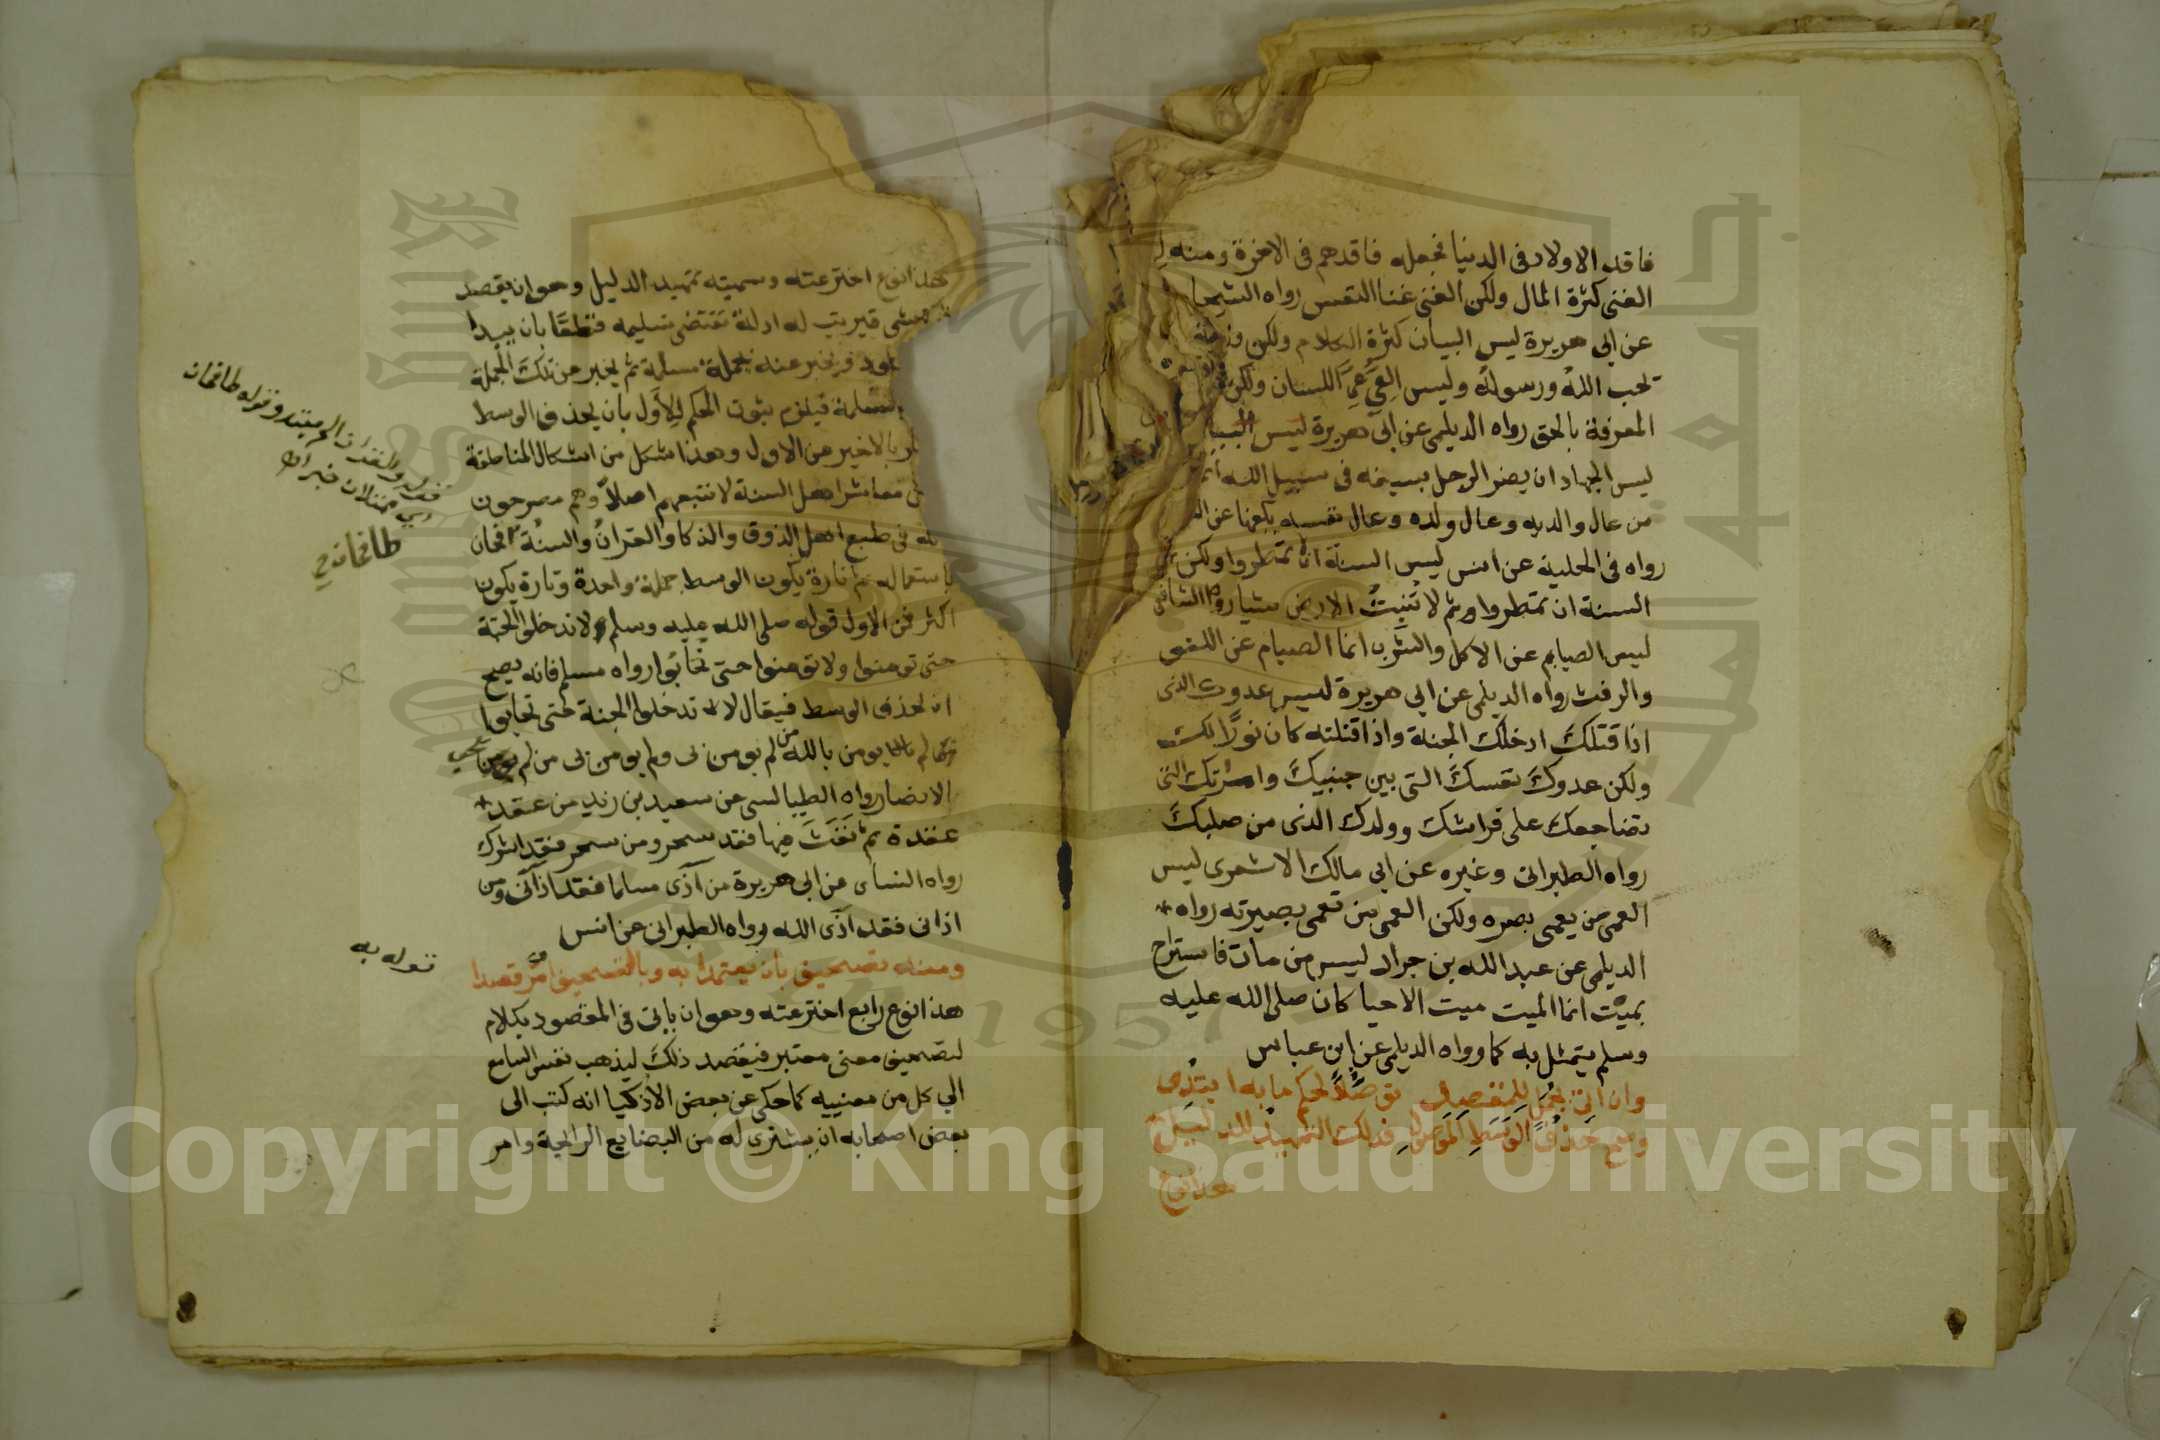 فاقد الاولاد في الدنيا فجعله فاقدهم في الاخرة ومنه ل
الغنى كثرة المال ولكن الغنى غنا النفس رواه الشيخا
عن ابي هريرة ليس البيان كثرة الكلام ولكن
تحب الله ورسوله وليس العي عي اللسان ولكن
المعرفة بالحق رواه الديلمى عن ابي هريرة ليس
ليس الجهاد ان يضر الرجل بسيفه في سبيل الله انما
من عال والديه وعال ولده وعال نفسه يكفها عن
رواه في الحلية عن انس ليس السنة ان لا تمطروا ولكن
السنة ان تمطروا ثم لا تنبت الارض شيا رواه الشافى
ليس الصيام عن الاكل والشرب انما الصيام عن اللغو
والرفث رواه الديلمى عن ابي هريرة ليس عدوك الذي
اذا قتلك ادخلك الجنة واذا قتلته كان نورا لك
ولكن عدوك نفسك التي بين جنبيك وامراتك التي
تضاجعك على فراشك وولدك الذي من صلبك
رواه الطبراني وغيره عن ابي مالك الاشعرى ليس
العمى من يعمى بصره ولكن العمى من تعمى بصيرته رواه
الديلمى عن عبد الله بن جراد ليس من مات فاستراح
بميت انما الميت ميت الاحيا كان صلى الله عليه
وسلم يتمثل به كما رواه الديلمى عن ابن عباس
وان اتى بجمل للمقصد توصلا لحكم ما به ابتدى
وصح حذف الوسط الموصل فذلك التمهيد للدليل
هذا نوع
هذا نوع اخترعته وسميته تمهيد الدليل وهو ان يقصد
قيرتب له ادلة تقتضى تسليمه قطعا بان يبدا
فيخبر عنه بجملة مسلمة ثم يخبر عن تلك الجملة
فيلزم ثبوت الحكم للاول بان يحذف الوسط
بالاخير من الاول وهذا شكل من اشكال المناطقة
معاشر اهل السنة لا نتبعهم اصلا وهم مصرحون
في طبع اهل الذوق والذكا والقران والسنة
باستعماله ثم تارة يكون الوسط جملة واحدة وتارة يكون
اكثر فمن الاول قوله صلى الله عليه وسلم لا تدخلوا الجنة
حتى تومنوا ولا تومنوا حتى تحابوا رواه مسلم فانه يصح
ان يحذف الوسط فيقال لا تدخلوا الجنة حتى تحابوا
يومن بالله من لم يومن بي ولم يومن بي من لم يحب
الانصار رواه الطيالسى عن سعيد بن زيد من عقد
عقدة ثم نفث فيها فقد سحر ومن سحر فقد اشرك
رواه النساى عن ابي هريرة من آذى مسلما فقد اذاني ومن
اذاني فقد آذى الله رواه الطبراني عن انس
ومنه تصحيف بان يعتمدا به وبالتصحيف امر قصدا
هذا نوع رابع اخترعته وهو ان ياتي في المقصود بكلام
لتصحيفه معنى معتبر فيقصد ذلك ليذهب نفس السامع
الي كل من معنييه كما حكى عن بعض الاذكيا انه كتب الى
بعض اصحابه ان يشتري له من البضايع الرايجة وامر
قوله به
Copyright © King Saud University
1957